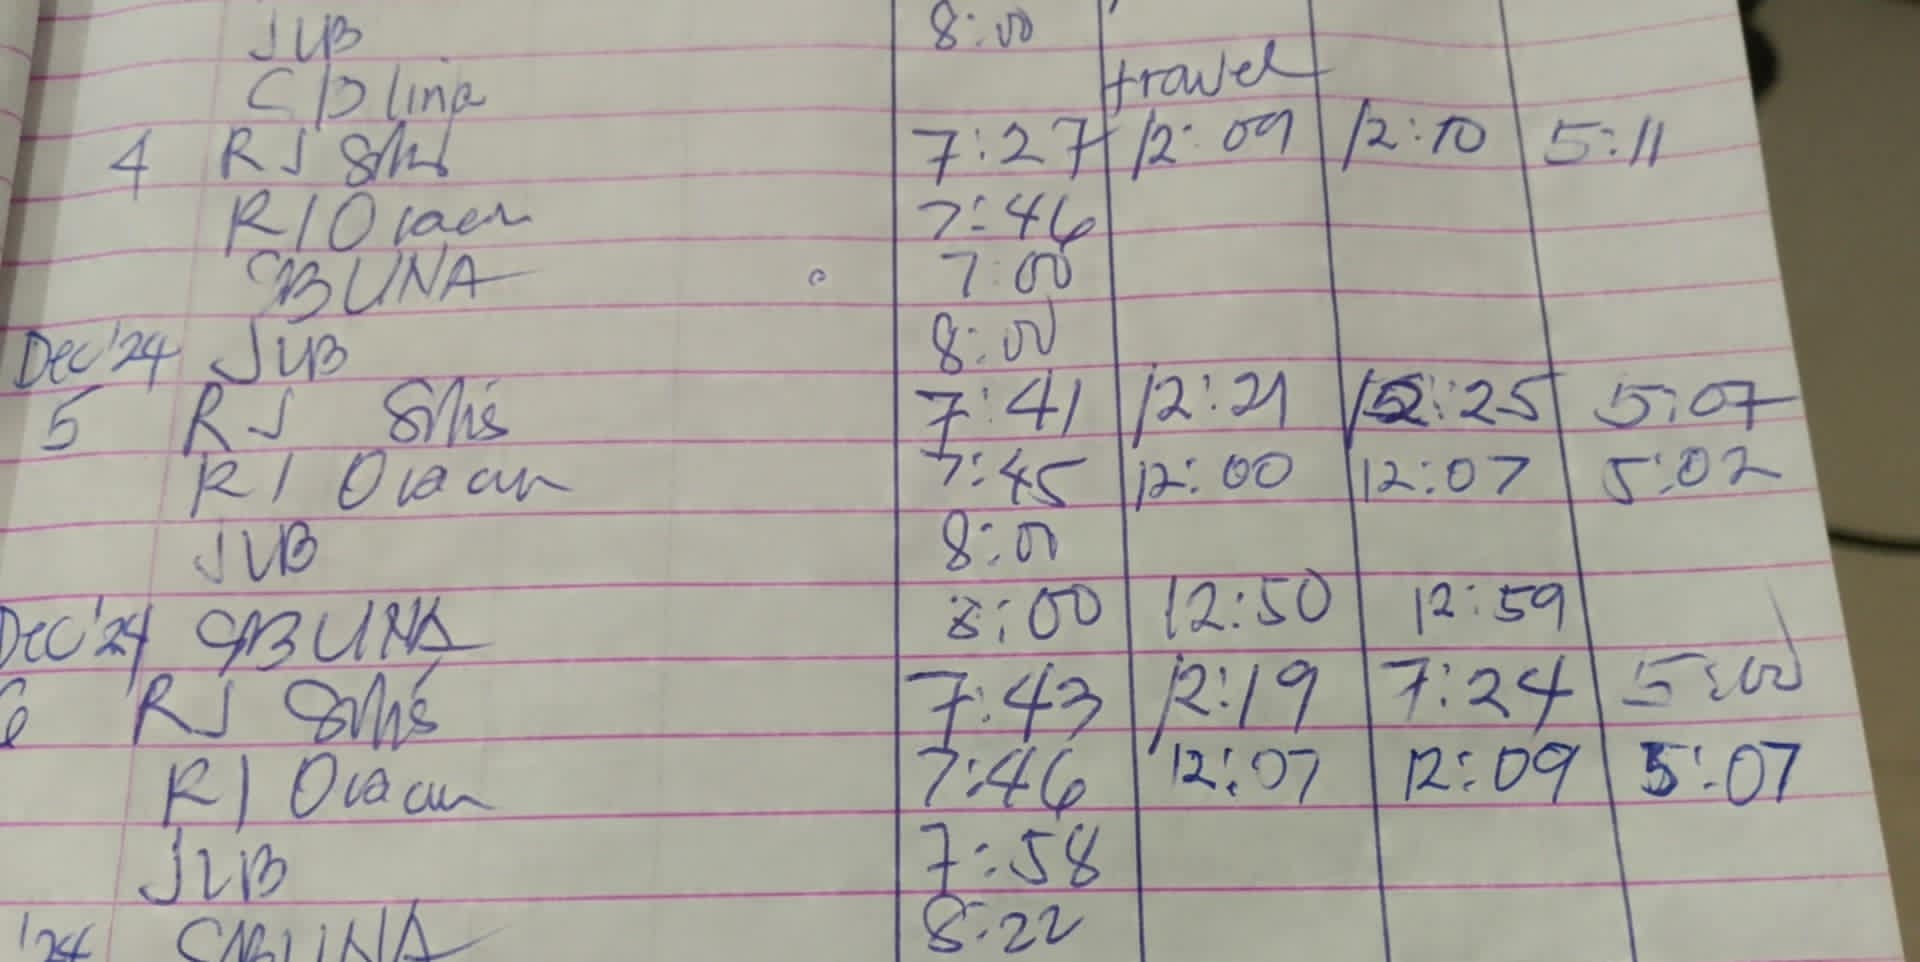 JUB 8:00
C/D lina travel
4 RJ 7:27 12:09 12:10 5:11
R/O 7:46
BUNA 7:00
Dec '24 JUB 8:00
5 RJ 7:41 12:21 12:25 5:07
R/O 7:45 12:00 12:07 5:02
JUB 8:00
Dec '24 BUNA 8:00 12:50 12:59
6 RJ 7:43 12:19 7:24 5:00
R/O 7:46 12:07 12:09 5:07
JUB 7:58
'24 8:22